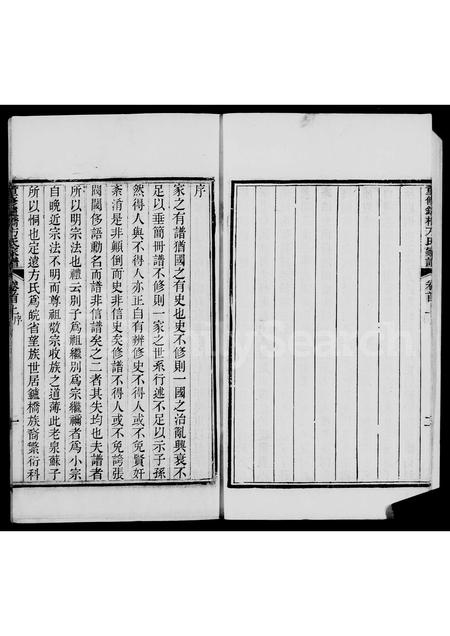 序
家之有譜猶國之有史也史不修則一國之治亂興衰不
足以垂簡冊譜不修則一家之世系行述不足以示子孫
然得人與不得人亦正自有辨修史不得人或不免賢奸
紊淆是非顛倒而史非信史矣修譜不得人或不免誇張
閥閱侈語勳名而譜非信譜矣之二者其失均也夫譜者
所以明宗法也禮云別子為祖繼別為宗繼禰者為小宗
自晚近宗法不明而尊祖敬宗收族之道薄此老泉蘇子
所以惻也定遠方氏為皖省望族世居鑪橋族裔繁衍科
重修鑪橋方氏家譜
卷首上
序
一
重修鑪橋方氏家譜
卷首
二